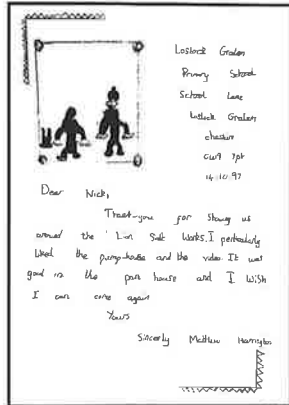 Lostock Gralam
Primary School
School Lane
Lostock Gralam
cheshire
CW9 7pt
14.10.97
Dear Nick,
Thank-you for showing us
around the Lion Salt Works. I perticularly
liked the pump-house and the video. It was
good in the pan house and I wish
I can come again
Yours
Sincerly Matthew Harrington